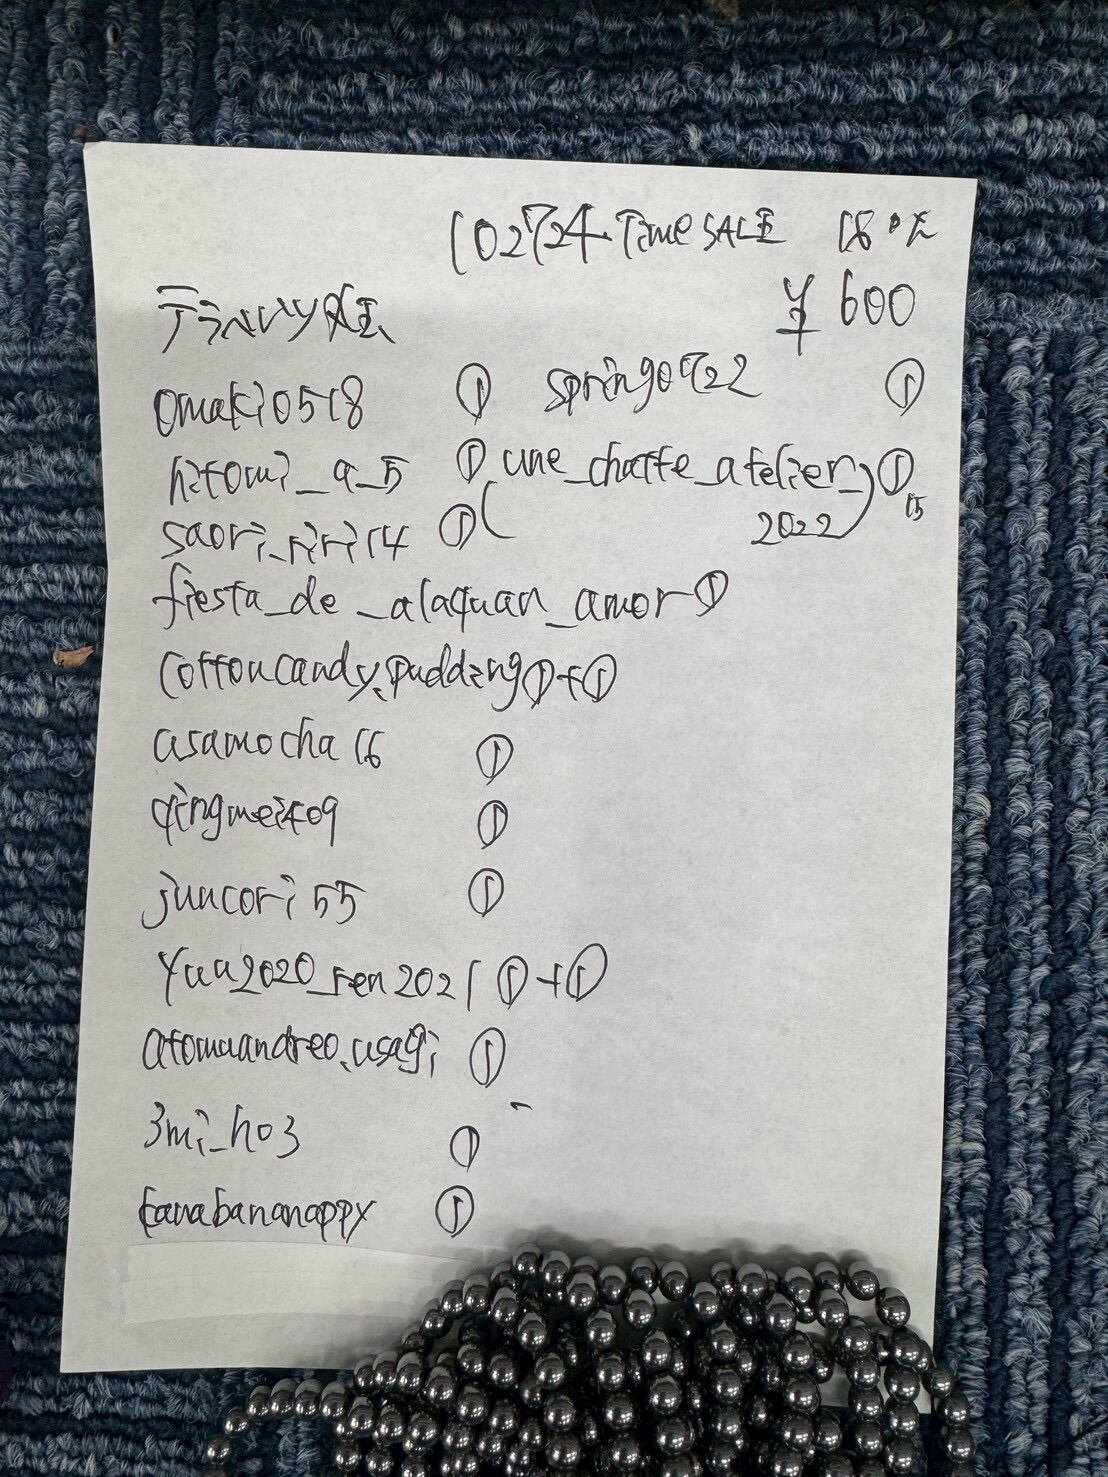 102724 Time SALE
¥600
テラヘルツ
omaki0518 ① springo722 ①
hitomi_a_5 ① une_chatte_atelier_ ①
saori_riri14 ① ( 2022) 15
fiesta_de_alaquan_amor ①
cottoncandy.pudding ①+①
asamocha16 ①
qingmei409 ①
juncori55 ①
yuu2020_ren2021 ①+①
atomuandreo.usagi ①
3mi_ho3 ①
tanabananappy ①